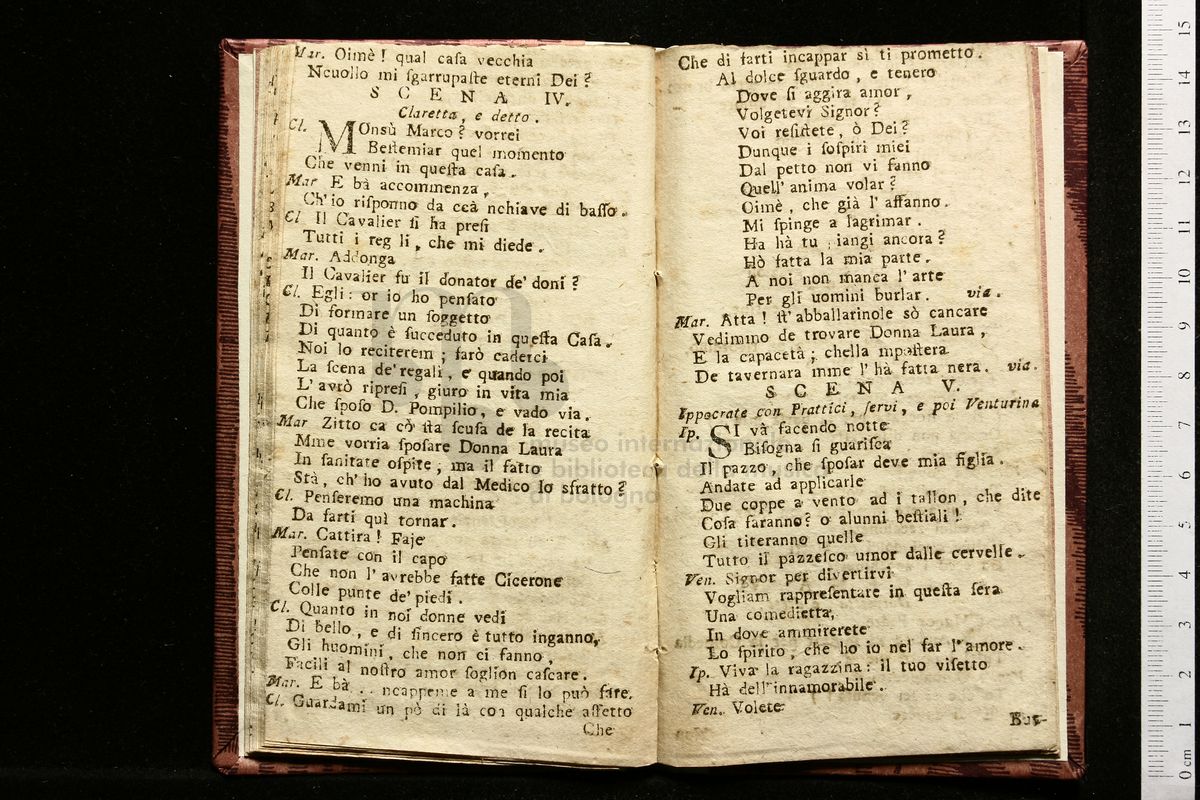 Mar. Oimè! qual caſa vecchia
Ncuollo mi ſgarrupaſte eterni Dei?
SCENA IV.
Claretta, e detto.
Cl. MOnsù Marco? vorrei
Beſtemiar quel momento
Che venni in queſta caſa.
Mar E bà accommenza,
Ch'io riſponno da ccà nchiave di baſſo.
Cl Il Cavalier ſi ha preſi
Tutti i reg li, che mi diede.
Mar. Addonga
Il Cavalier fu il donator de' doni?
Cl. Egli: or io ho penſato
Di formare un ſoggetto
Di quanto è ſucceduto in queſta Caſa.
Noi lo reciterem; farò caderci
La ſcena de' regali, e quando poi
L'avrò ripreſi, giuro in vita mia
Che ſpoſo D. Pompilio, e vado via.
Mar Zitto ca cò ſta ſcuſa de la recita
Mme vorria ſpoſare Donna Laura
In ſanitate oſpite; ma il fatto
Stà, ch'ho avuto dal Medico lo sfratto?
Cl. Penſeremo una machina
Da farti quì tornar.
Mar. Cattira! Faje
Penſate con il capo
Che non l'avrebbe fatte Cicerone
Colle punte de' piedi.
Cl. Quanto in noi donne vedi
Di bello, e di ſincero è tutto inganno,
Gli huomini, che non ci fanno,
Facili al noſtro amor ſoglion caſcare.
Mar. E bà .. ncappeme a me ſi lo può fare.
Cl. Guardami un pò di là con qualche affetto
Che
Che di farti incappar sì ti prometto.
Al dolce ſguardo, e tenero
Dove ſi aggira amor,
Volgetevi Signor?
Voi reſiſtete, ò Dei?
Dunque i ſoſpiri miei
Dal petto non vi fanno
Quell'anima volar?
Oimè, che già l'affanno.
Mi ſpinge a lagrimar.
Ha hà tu iangi ancora?
Hò fatta la mia parte.
A noi non manca l'arte
Per gli uomini burlar. via.
Mar. Atta! ſt'abballarinole sò cancare
Vedimmo de trovare Donna Laura,
E la capacetà; chella mpoſtera
De tavernara mme l'hà fatta nera. via.
SCENA V.
Ippocrate con Prattici, ſervi, e poi Venturina
Ip. SI và facendo notte
Biſogna ſi guariſca
Il pazzo, che ſpoſar deve mia figlia.
Andate ad applicarle
Due coppe a vento ad i tallon, che dite
Coſa faranno? o alunni beſtiali!
Gli titeranno quelle
Tutto il pazzeſco umor dalle cervelle.
Ven. Signor per divertirvi
Vogliam rappreſentare in queſta ſera
Una comedietta,
In dove ammirerete
Lo ſpirito, che ho io nel far l'amore.
Ip. Viva la ragazzina: il tuo viſetto
Hà dell'innamorabile.
Ven. Volete
museo internazionale
e biblioteca della musica
di bologna
15
14
13
12
11
10
9
8
7
6
5
4
3
2
1
0 cm